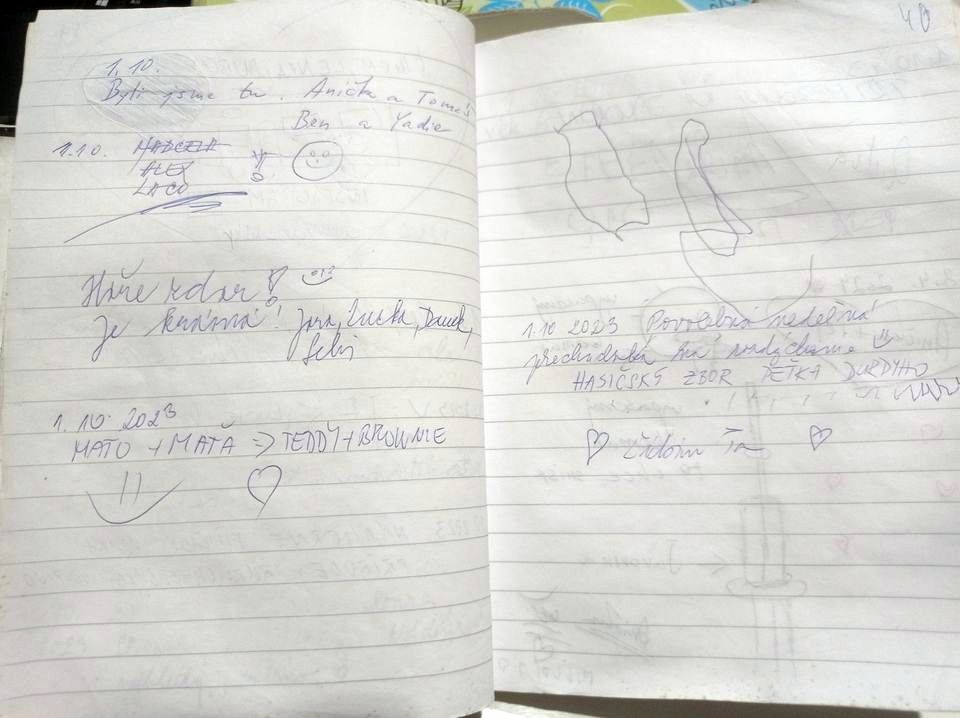 1.10.
Byli jsme tu. Anička a Tomáš
Ben a Yadie
1.10. MARCELA
ALEX
LACO
Hore zdar!
Je krásně! Jara, Lucka, Danek,
1.10.2023
MATO + MAŤA => TEDDY + BROWNIE
40
1.10 2023 Povolebná nedeľná
prechádzka na
HASIČSKÝ ZBOR PEŤKA DURDYHO
Ľúbim Ťa